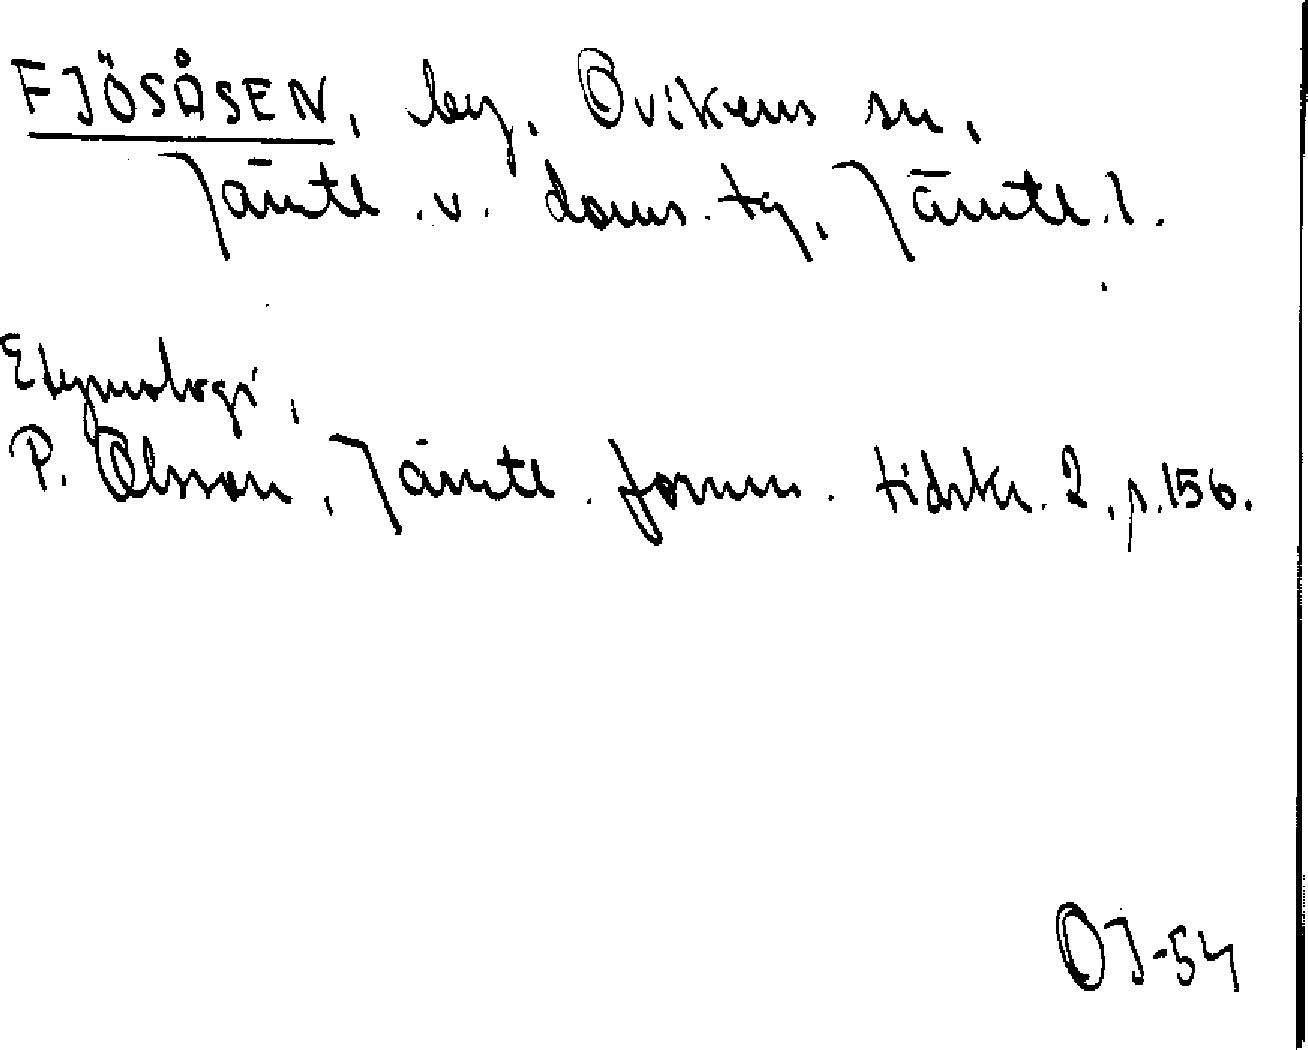 FJÖSÅSEN, by, Ovikens sn,
Jämtl. v. doms. tg, Jämtl. l.
Etymologi,
P. Olsson, Jämtl. fornm. tidskr. 2, p. 156.
OJ-54